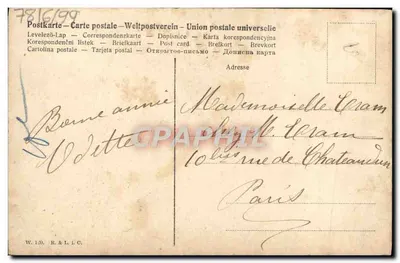 78/6/99
Postkarte — Carte postale — Weltpostverein — Union postale universelle
Levelező-Lap — Correspondenzkarte — Dopisnice — Karta korespondencyjna
Korespondenční lístek — Briefkaart — Post card — Brefkort — Brevkort
Cartolina postale — Tarjeta postal — Открытое-письмо — Дописна карта
Adresse
Bonne année
Odette
Mademoiselle Tram
chez Mlle Tram
10 bis rue de Chateaudun
Paris
PHILA
W. 130. R. & L. i. C.